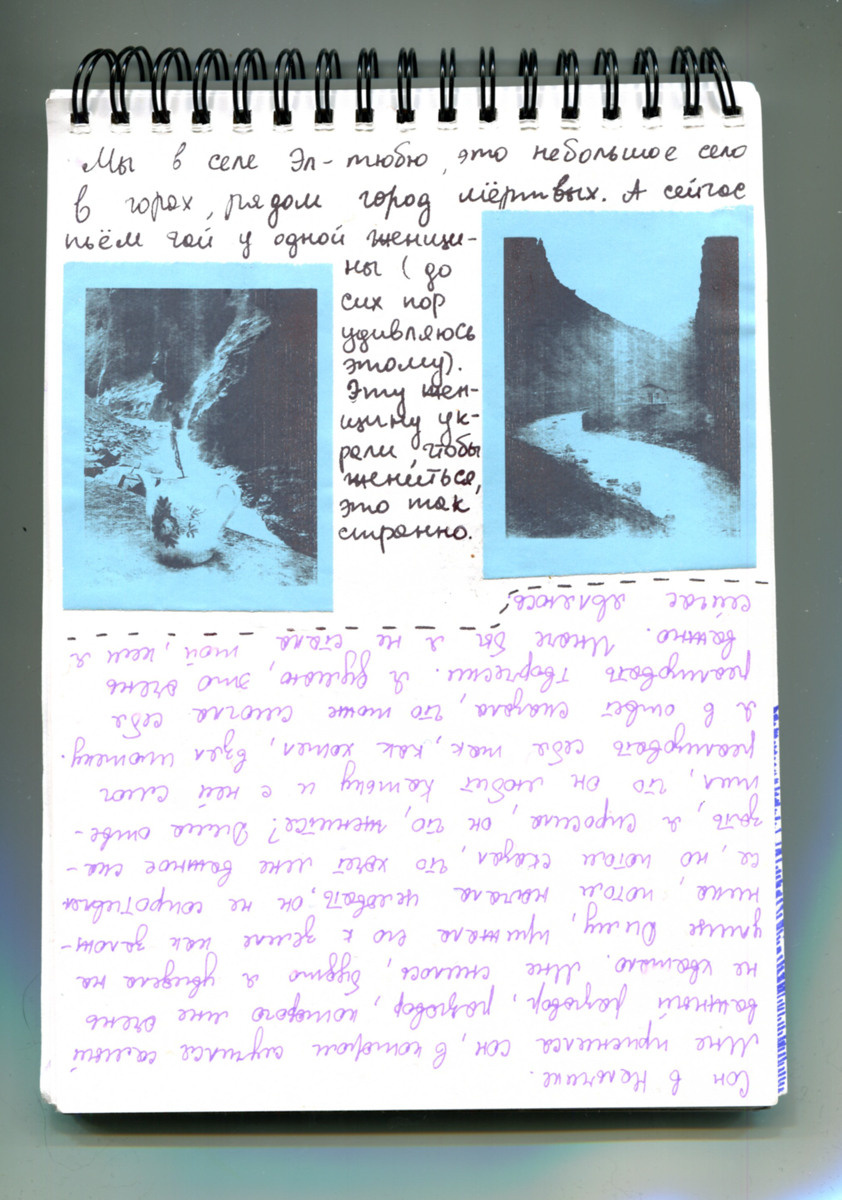 Мы в селе Эл-тюбю, это небольшое село
в горах, рядом город мёртвых. А сейчас
пьём чай у одной женщи-
ны (до
сих пор
удивляюсь
этому).
Эту жен-
щину ук-
рали, чтобы
жениться,
это так
странно.
Сон в Нальчике.
Мне приснился сон, в котором случился самый
важный разговор, разговор, которого мне очень
не хватало. Мне снилось, будто я увидела на
улице Диму, прижала его к земле как залож-
ника, потом начала целовать, он не сопротивлял
ся, но потом сказал, что хочет мне важное ска-
зать, я спросила, он, что, женится? Дима отве-
тил, что он любит Катьку и с ней смог
реализовать себя так, как хотел, взял ипотеку.
Я в ответ сказала, что тоже смогла себя
реализовать творчески. Я думаю, это очень
важно. Иначе бы я не стала той, кем я
сейчас являюсь.